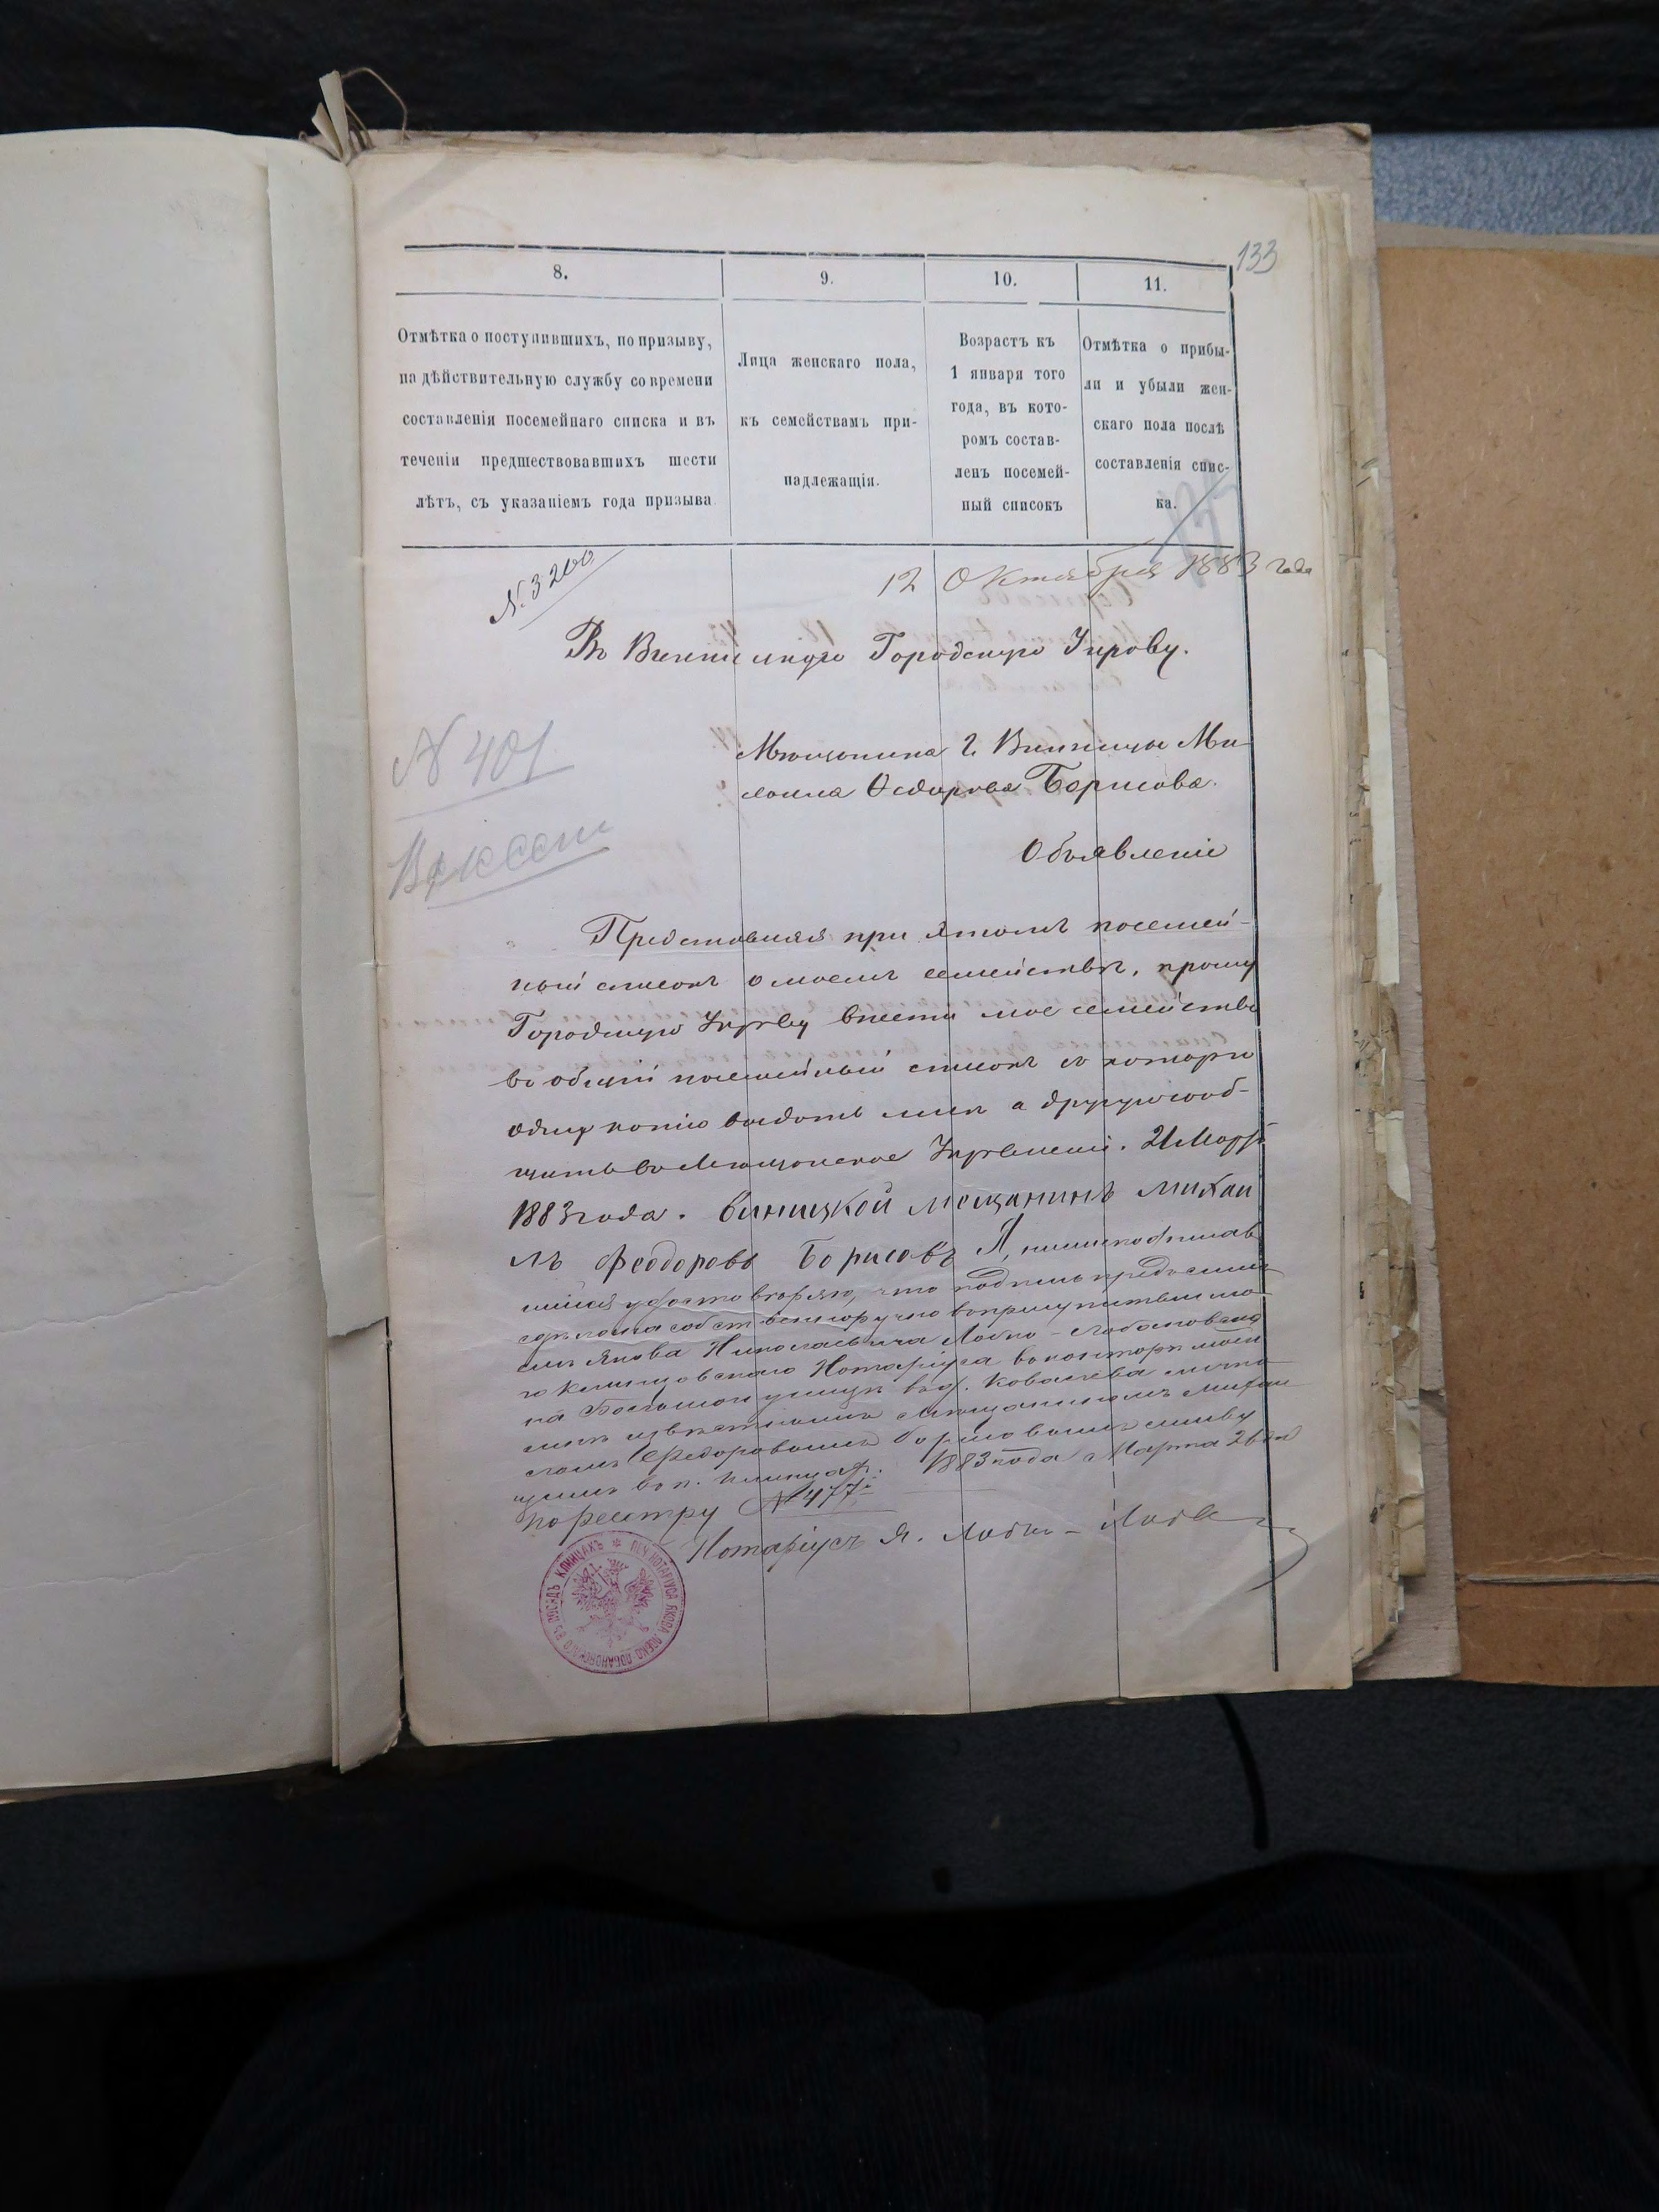 133
8.
9.
10.
11.
Отмѣтка о поступившихъ, по призыву,
на дѣйствительную службу со времени
составленія посемейнаго списка и въ
теченіи предшествовавшихъ шести
лѣтъ, съ указаніемъ года призыва.
Лица женскаго пола,
къ семействамъ при-
надлежащія.
Возрастъ къ
1 января того
года, въ кото-
ромъ состав-
ленъ посемей-
ный списокъ
Отмѣтка о прибы-
ли и убыли жен-
скаго пола послѣ
составленія спис-
ка.
N. 3200
12 Октября 1883 года
Въ Винницкую Городскую Управу.
N 401
Мѣщанина г. Винницы Ми-
хаила Ѳедорова Борисова.
Объявленіе
Представляя при этомъ посемей-
ный списокъ о моемъ семействѣ, прошу
Городскую Управу внести мое семейство
во общій посемейный списокъ съ котораго
одну копію выдать мнѣ а другую сооб-
щить въ Мѣщанское Управленіе. 21 Марта
1883 года. Виницкой мещанинъ Михаи
лъ Феодоровъ Борисовъ Я, нижеподписав
шійся удостовѣряю, что подпись предъ симъ
сдѣлана собственноручно въ присутствіи мо
емъ Якова Николаевича Лобко-Лобановска
го Клинцовскаго Нотаріуса въ конторѣ моей
на улицѣ въ д. Ковалева лично
мнѣ извѣстнымъ Мѣщаниномъ Михаи
ломъ Федоровымъ Борисовымъ живу
щимъ въ п. Клинцахъ. 1883 года Марта дня
по реестру № 477.
Нотаріусъ Я. Лобко-
ПЕЧ. НОТАРІУСА ЯКОВА ЛОБКО ЛОБАНОВСКАГО ВЪ ПОСАДѢ КЛИНЦАХЪ